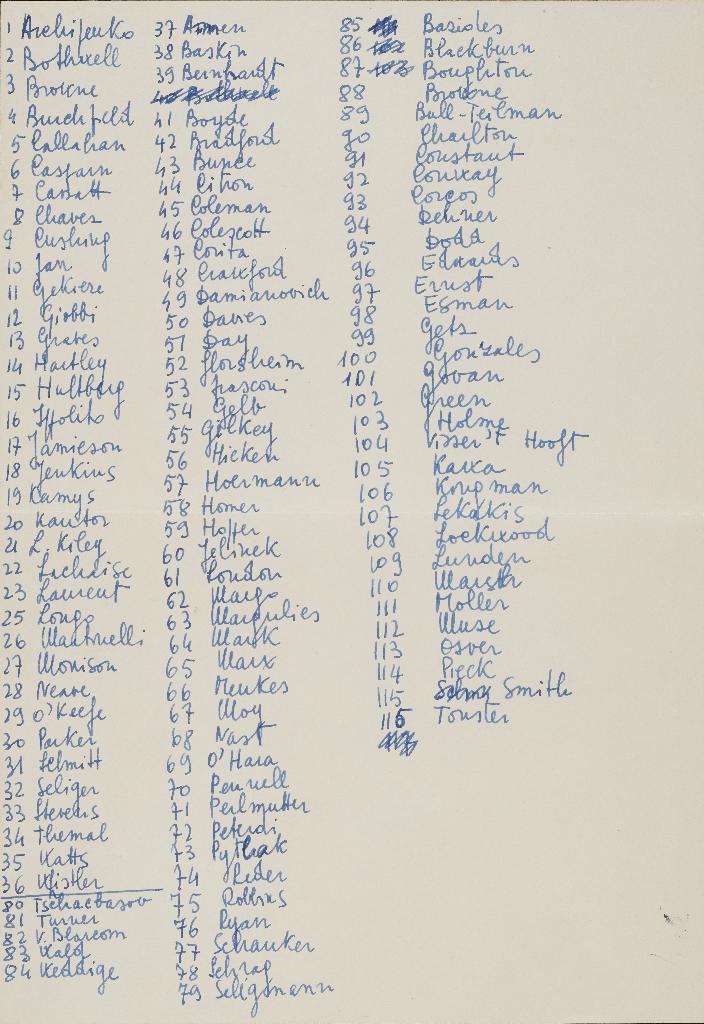 1 Archipenko
2 Bothwell
3 Browne
4 Burchfeld
5 Callahan
6 Casparn
7 Cassatt
8 Chaves
9 Cushing
10 Farr
11 Gekiere
12 Giobbi
13 Graves
14 Hartley
15 Hultberg
16 Ippolito
17 Jamieson
18 Jenkins
19 Kamys
20 Kantor
21 L. Kiley
22 Lachaise
23 Laurent
25 Longo
26 Mantonelli
27 Morrison
28 Neave
29 O'Keefe
30 Parker
31 Schmitt
32 Seliger
33 Stevens
34 Themal
35 Watts
36 Wistler
80 Tschacbasov
81 Turner
82 V. Blarcom
83 Wald
84 Weddige
37 Armen
38 Baskin
39 Bernhardt
40 Bothwell
41 Boyde
42 Bradford
43 Bunce
44 Citron
45 Coleman
46 Colescott
47 Corita
48 Crawford
49 Damianovich
50 Davies
51 Day
52 Florsheim
53 Frasconi
54 Gelb
55 Gilkey
56 Hicken
57 Hoermann
58 Homer
59 Hoffer
60 Jelinek
61 London
62 Margo
63 Margulies
64 Mark
65 Marx
66 Menkes
67 Moy
68 Nast
69 O'Hara
70 Pennell
71 Perlmutter
72 Peterdi
73 Pytlak
74 Reder
75 Robbins
76 Ryan
77 Schanker
78 Schrag
79 Seligmann
85 Basioles
86 Blackburn
87 Boughton
88 Browne
89 Bull-Teilman
90 Charlton
91 Constant
92 Conway
93 Corcos
94 Dehner
95 Dodd
96 Edwards
97 Ernst
98 Esman
99 Getz
100 Gonzales
101 Govan
102 Green
103 Holme
104 Visser't Hooft
105 Kawa
106 Krugman
107 Lekakis
108 Lockwood
109 Lunden
110 Marsh
111 Moller
112 Muse
113 Osver
114 Pieck
115 Smith
116 Tonster